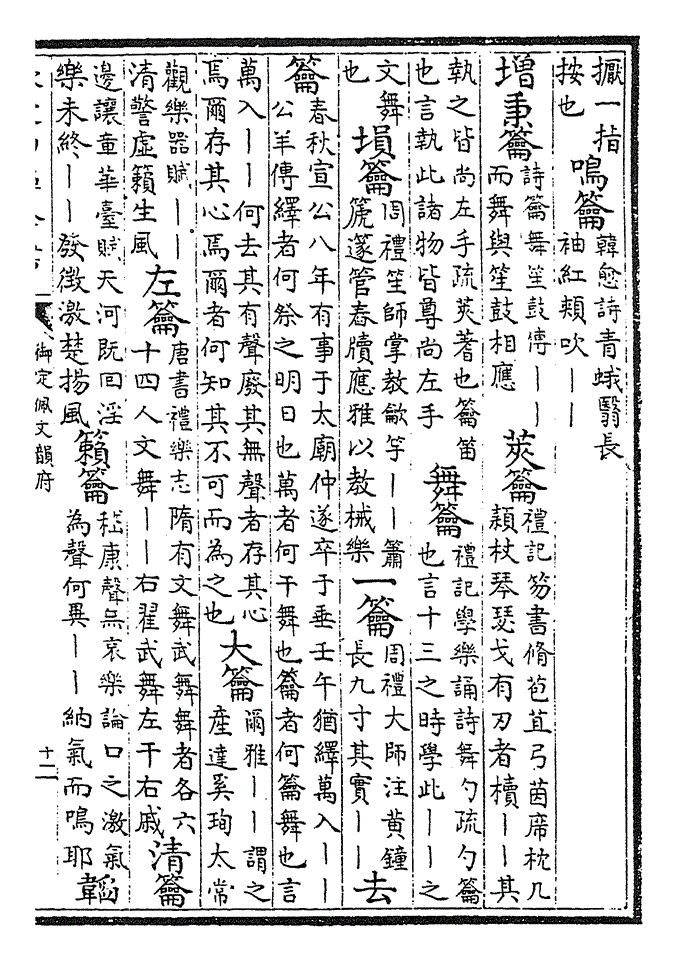 擫一指
按也
鳴籥
韓愈詩青蛾翳長
袖紅頰吹丨丨
增秉籥
詩籥舞笙鼓傳丨丨
而舞與笙鼓相應
莢籥
禮記笏書脩苞苴弓茵席枕几
穎杖琴瑟戈有刃者櫝丨丨其
執之皆尚左手疏莢蓍也籥笛
也言執此諸物皆尊尚左手
舞籥
禮記學樂誦詩舞勺疏勺籥
也言十三之時學此丨丨之
文舞
也
塤籥
周禮笙師掌教龡竽丨丨簫
篪篴管舂牘應雅以教祴樂
一籥
周禮大師注黃鐘
長九寸其實丨丨
去
籥
春秋宣公八年有事于太廟仲遂卒于垂壬午猶繹萬入丨丨
公羊傳繹者何祭之明日也萬者何干舞也籥者何籥舞也言
萬入丨丨何去其有聲廢其無聲者存其心
焉爾存其心焉爾者何知其不可而為之也
大籥
爾雅丨丨謂之
産達奚珣太常
觀樂器賦丨丨
清警虛籟生風
左籥
唐書禮樂志隋有文舞武舞舞者各六
十四人文舞丨丨右翟武舞左干右戚
清籥
邊讓章華臺賦天河既回淫
樂未終丨丨發徵激楚揚風
籟籥
嵇康聲無哀樂論口之激氣
為聲何異丨丨納氣而鳴耶
韜
御定佩文韻府
十二